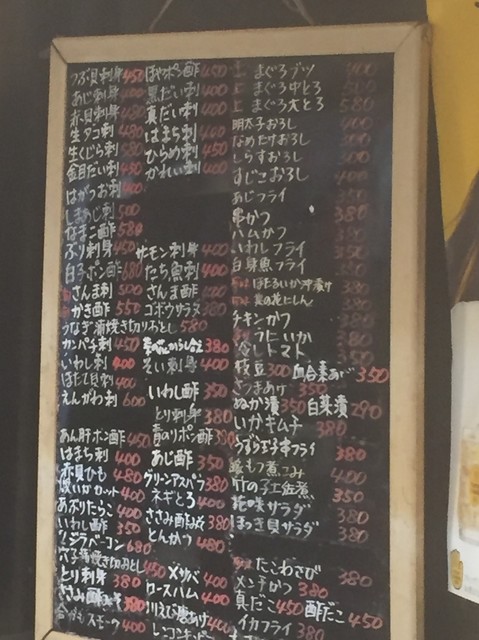 つぶ貝刺身 450
あじ刺 400
赤貝刺身 480
生タコ刺 480
生くじら刺 580
金目だい刺 450
はがつお刺 400
しまあじ刺 500
なまこ酢 580
ぶり刺身 450
白子ポン酢 680
さんま刺 500
かき酢 550
うなぎ蒲焼き切りおとし 580
カンパチ刺 450
いわし刺 400
ほたて貝刺 400
えんがわ刺 600
あん肝ポン酢 450
はまち刺 400
赤貝ひも 480
あぶりたらこ 400
いわし酢 350
クジラベーコン 680
穴子蒲焼き切おとし 450
とり刺身 380
さざみ酢みそ 380
合がもスモーク 400
ほやポン酢 450
黒だい刺 400
真だい刺 400
はまち刺
ひらめ刺 450
かれい刺 400
サーモン刺身 400
たち魚刺 400
さんま酢
ゴボウサラダ 380
そい刺身 400
いわし酢 350
とり刺身 380
青のりポン酢 380
あじ酢 350
グリーンアスパラ 380
ネギとろ 400
ささみ酢みそ 380
とんかつ 480
〆サバ 400
ロースハム 400
川えび唐あげ 400
まぐろブツ
上 まぐろ中とろ 500
上 まぐろ大とろ 580
明太子おろし 400
なめたけおろし 300
しらすおろし 300
すじこおろし 400
あじフライ 350
串かつ 380
ハムカツ 350
いわしフライ 350
白身魚フライ 350
ほたるいか沖漬け
菜の花にしん
チキンかつ 380
冷しトマト 350
枝豆 300 血合葉あげ 350
さつまあげ 350
ぬか漬 350 白菜漬 290
いかキムチ 380
うずら玉子串フライ 380
もつ煮こみ 400
竹の子土佐煮 350
花咲サラダ 380
ほっき貝サラダ 380
たこわさび 380
メンチかつ 380
真だこ 450 酢だこ 450
イカフライ 380